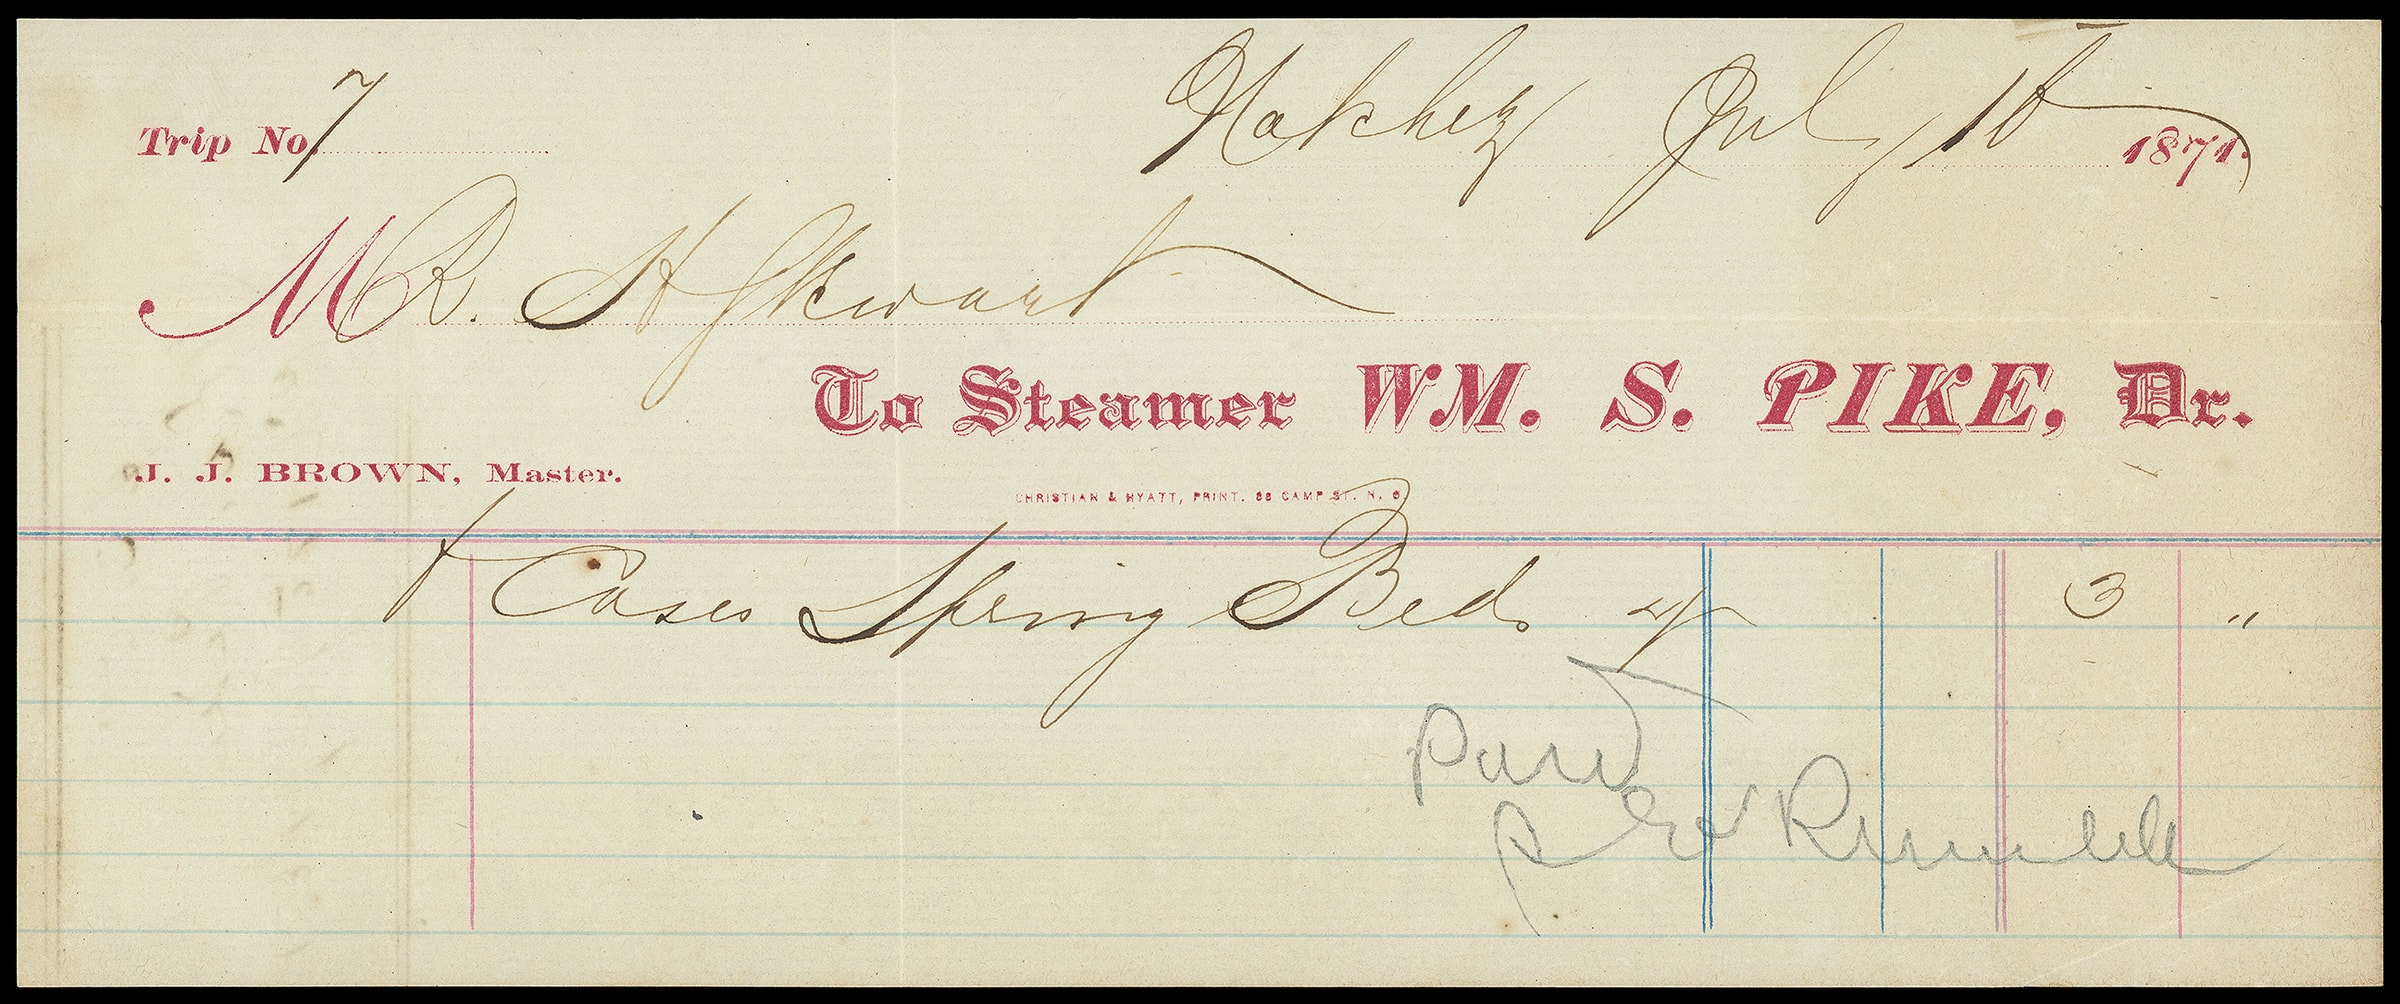 Trip No. 7 Natchez July 18 1871.
M R. H Stewart
To Steamer WM. S. PIKE, Dr.
J. J. BROWN, Master.
CHRISTIAN & HYATT, PRINT. 88 CAMP ST. N. O.
Cases Spring Beds 3 "
paid